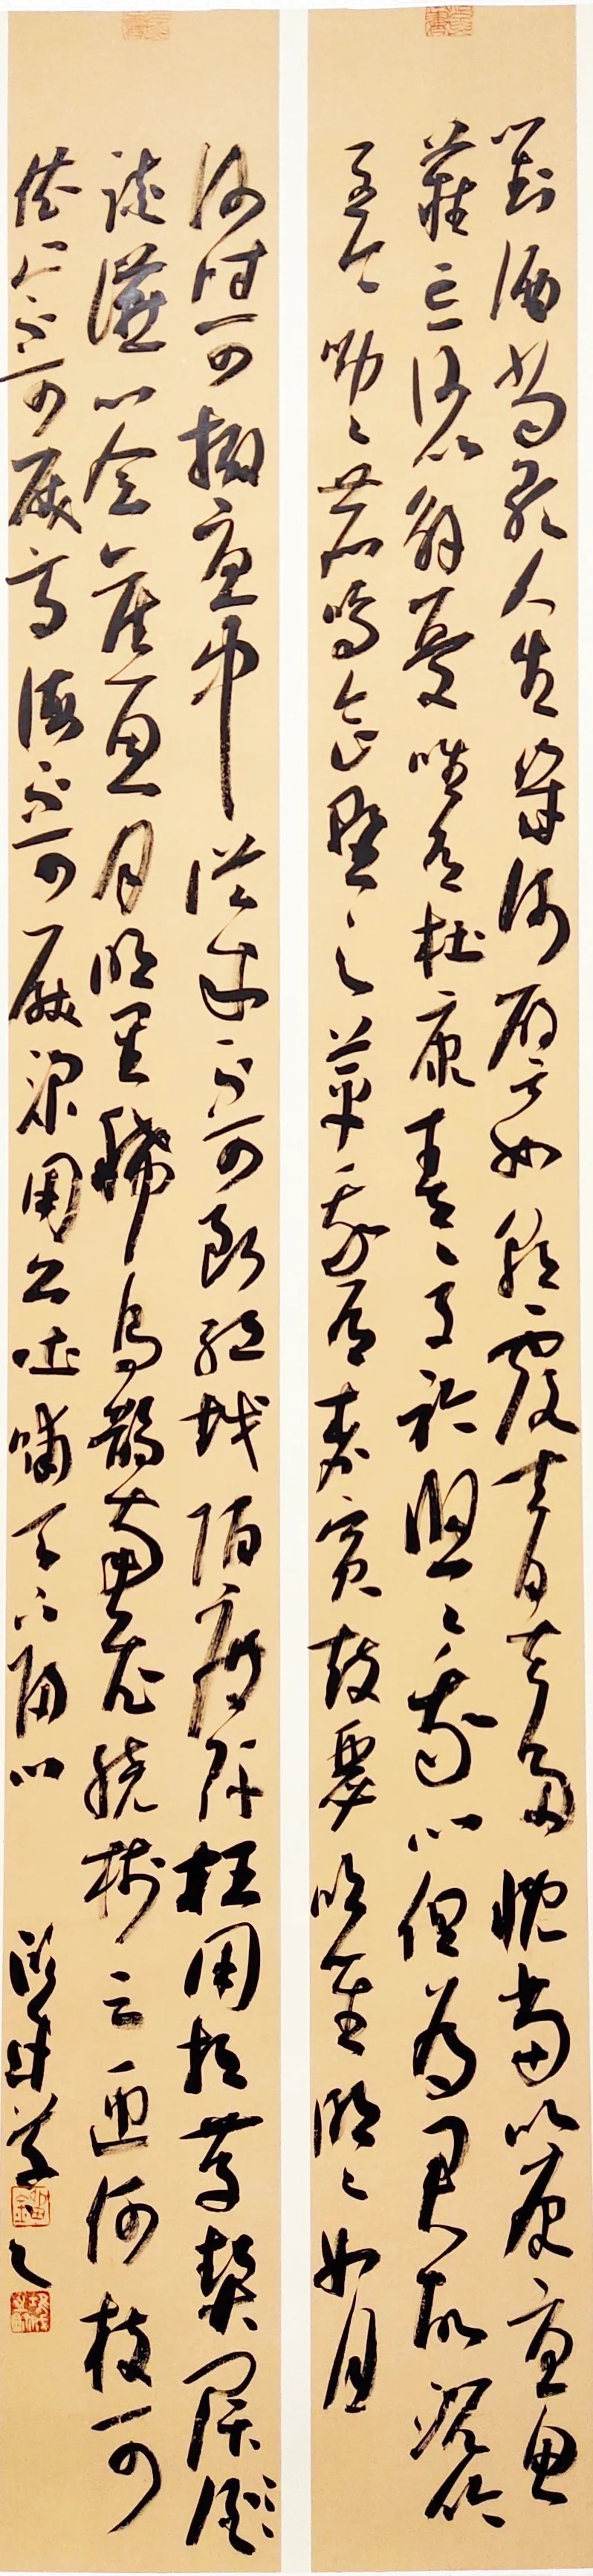 對酒當歌人生幾何譬如朝露去日苦多慨當以慷憂思
難忘何以解憂唯有杜康青々子衿悠々我心但為君故沉吟
至今呦々鹿鳴食野之苹我有嘉賓鼓瑟吹笙明々如月
何時可掇憂中從来不可斷絕越陌度阡枉用相存契闊
談讌心念舊恩月明星稀烏鵲南飛繞樹三匝何枝可
依山不可厭高海不可厭深周公吐哺天下歸心